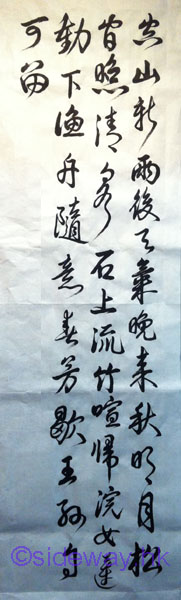 空山新雨後天氣晚来秋明月松
間照清泉石上流竹喧歸浣女蓮
動下漁舟隨意春芳歇王孫自
可留
©sideway.hk